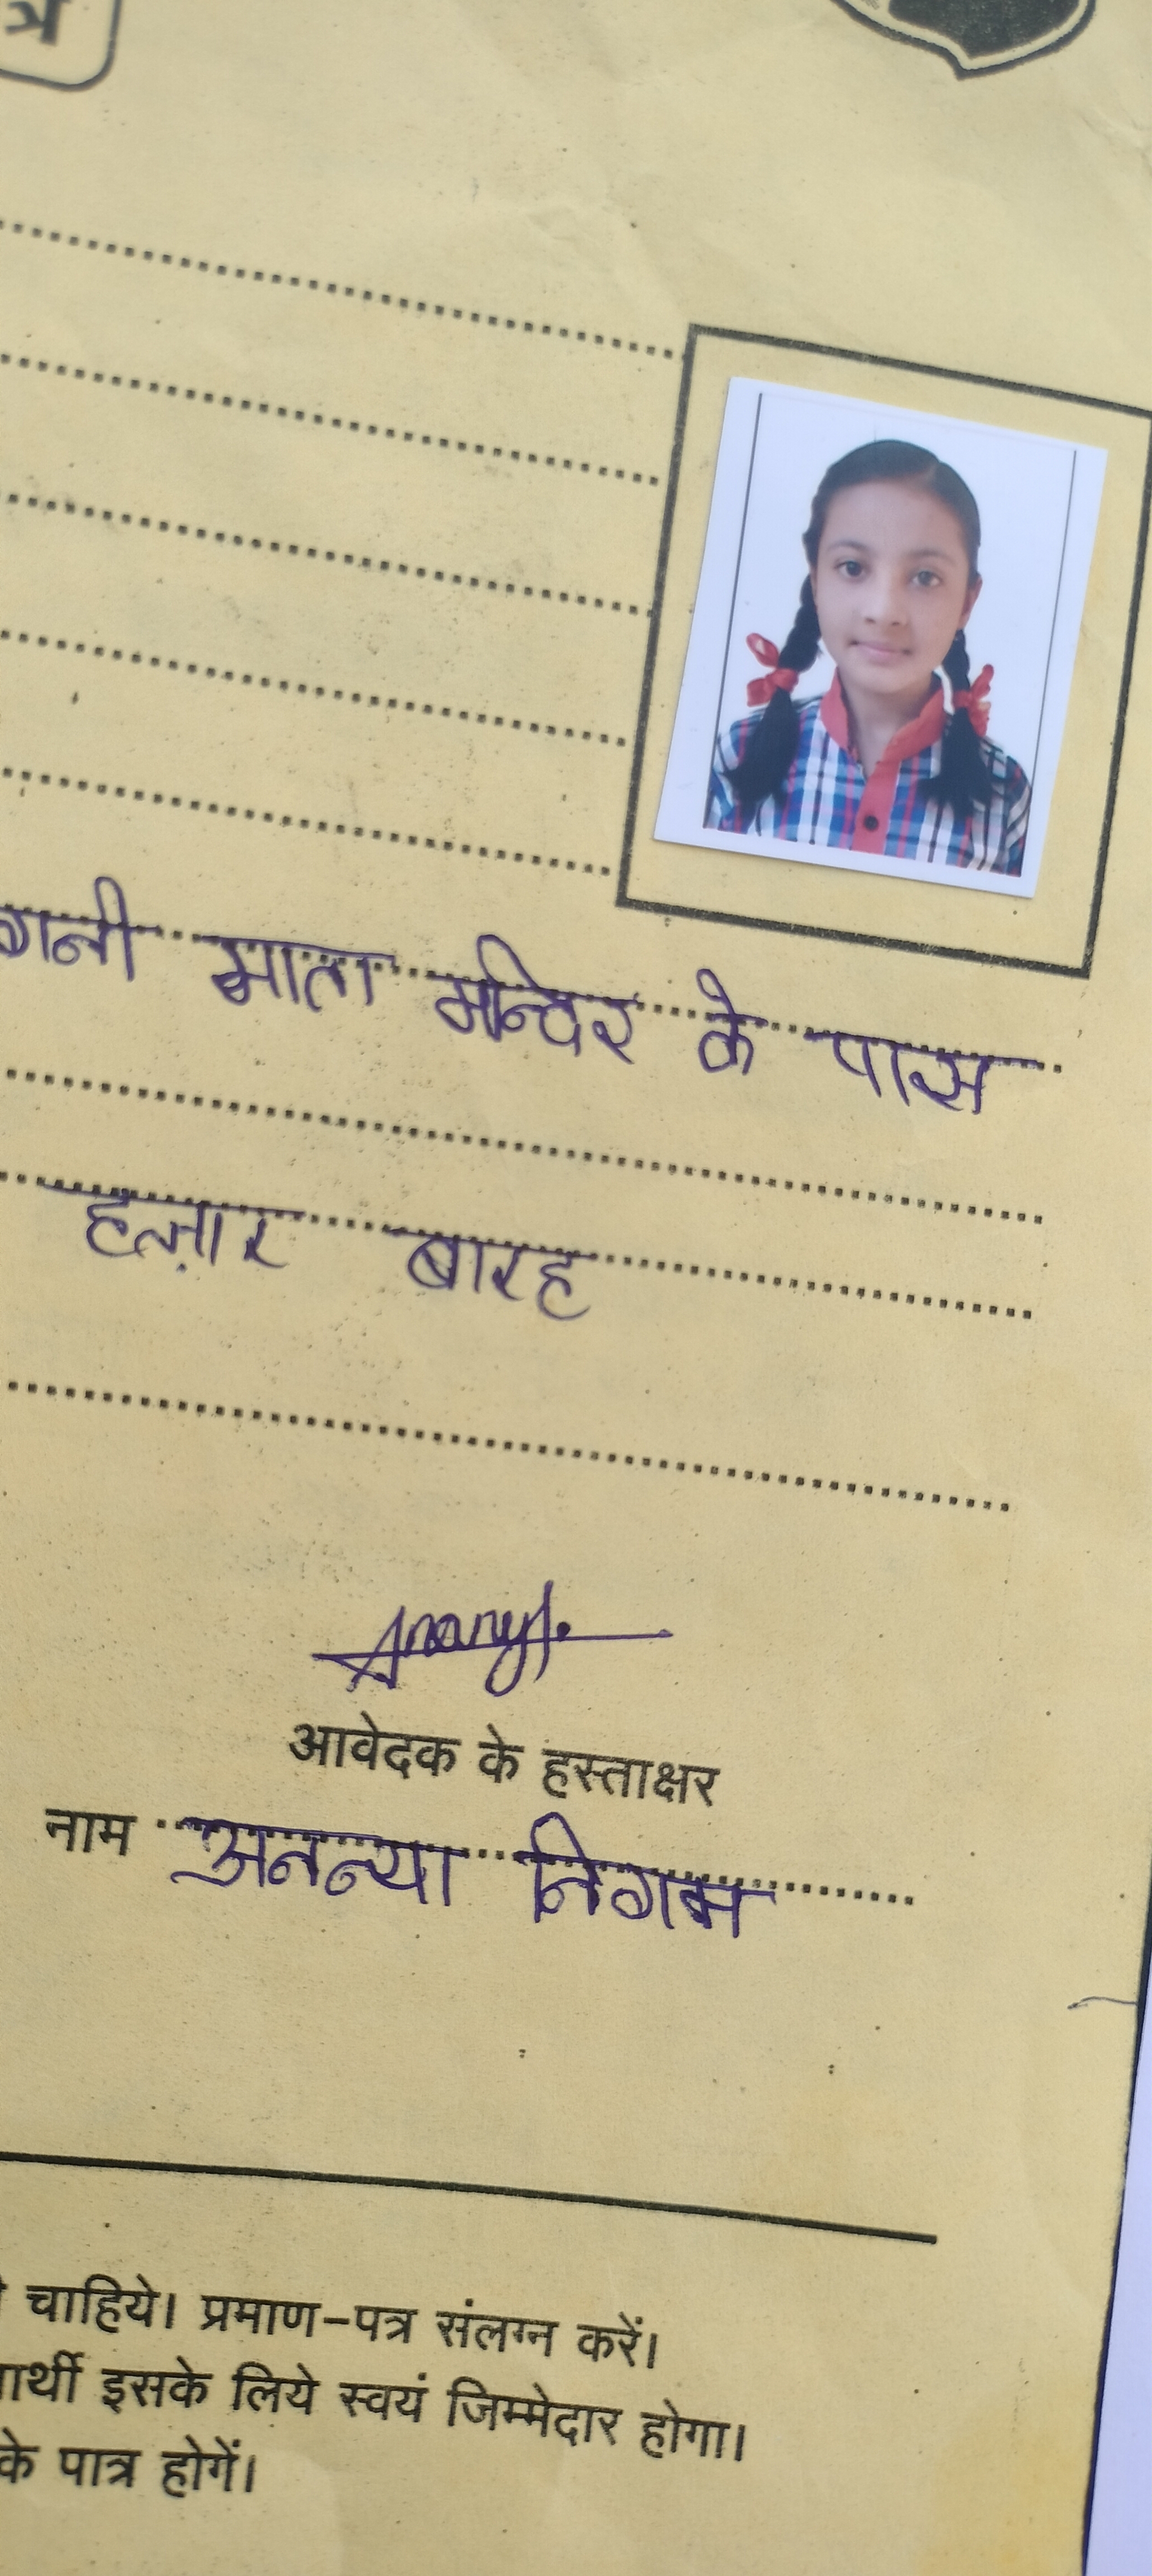 त्र
माता मन्दिर के पास
हज़ार बारह
Ananya
आवेदक के हस्ताक्षर
नाम अनन्या निगम
चाहिये। प्रमाण-पत्र संलग्न करें।
इसके लिये स्वयं जिम्मेदार होगा।
के पात्र होगें।